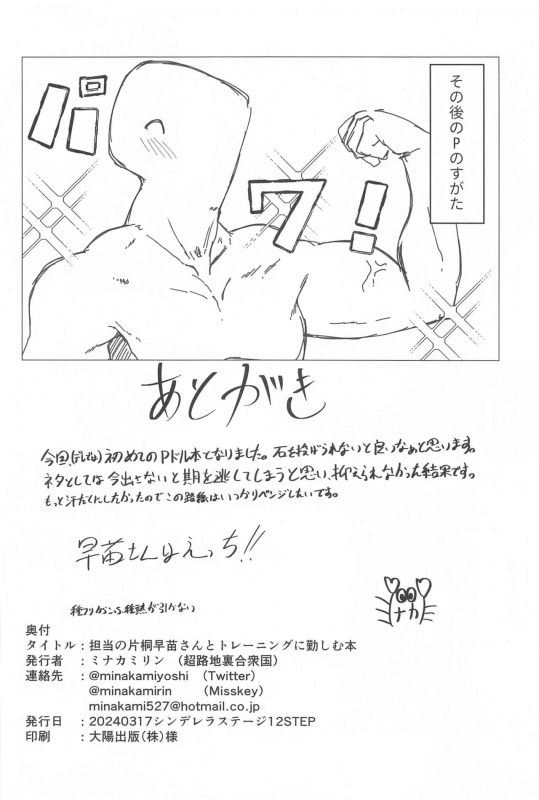 その後のPのすがた
パワー!
あとがき
今回、初めてのPドル本となりました。石を投げられないと良いなぁと思います。
ネタとしては今出さないと期を逃してしまうと思い、抑えられなかった結果です。
もっと汗だくにしたかったのでこの路線はいつかリベンジしたいです。
早苗さんはえっち!!
ナカ
奥付
タイトル:担当の片桐早苗さんとトレーニングに勤しむ本
発行者 :ミナカミリン (超路地裏合衆国)
連絡先 :@minakamiyoshi (Twitter)
@minakamirin (Misskey)
minakami527@hotmail.co.jp
発行日 :20240317シンデレラステージ12STEP
印刷 :大陽出版(株)様